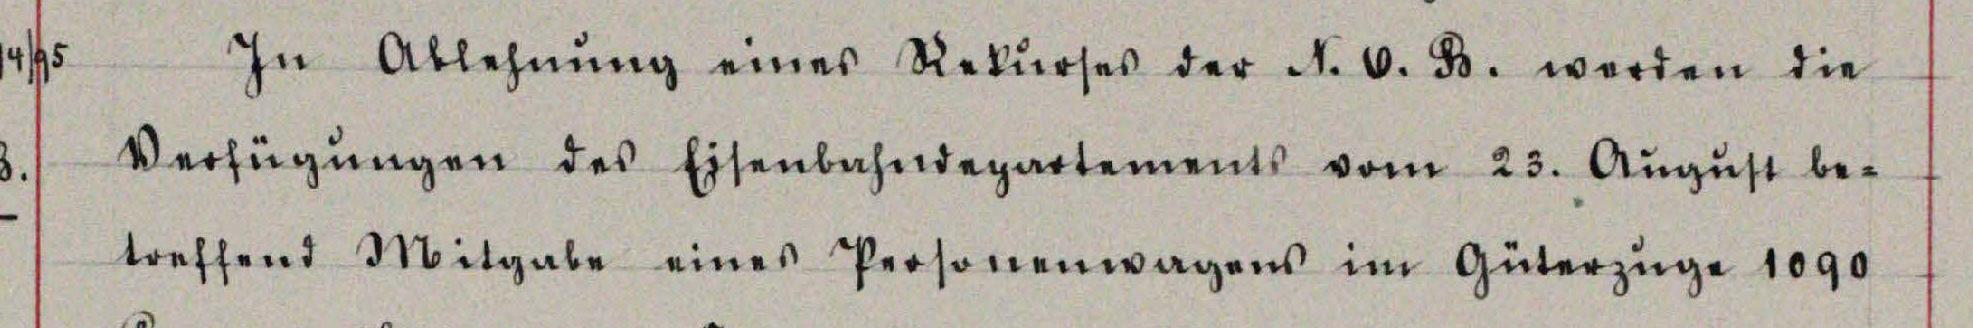 14/95 In Ablehnung eines Rekurses der N. O. B. werden die
3. Verfügungen des Eisenbahndepartements vom 23. August be-
treffend Mitgabe eines Personenwagens im Güterzuge 1090